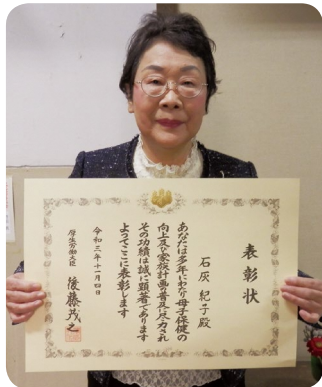 表彰状
石灰紀子殿
あなたは多年にわたり母子保健の
向上及び家族計画の普及に尽力され
その功績は誠に顕著であります
よってここに表彰します
令和三年十一月四日
厚生労働大臣
後藤茂之